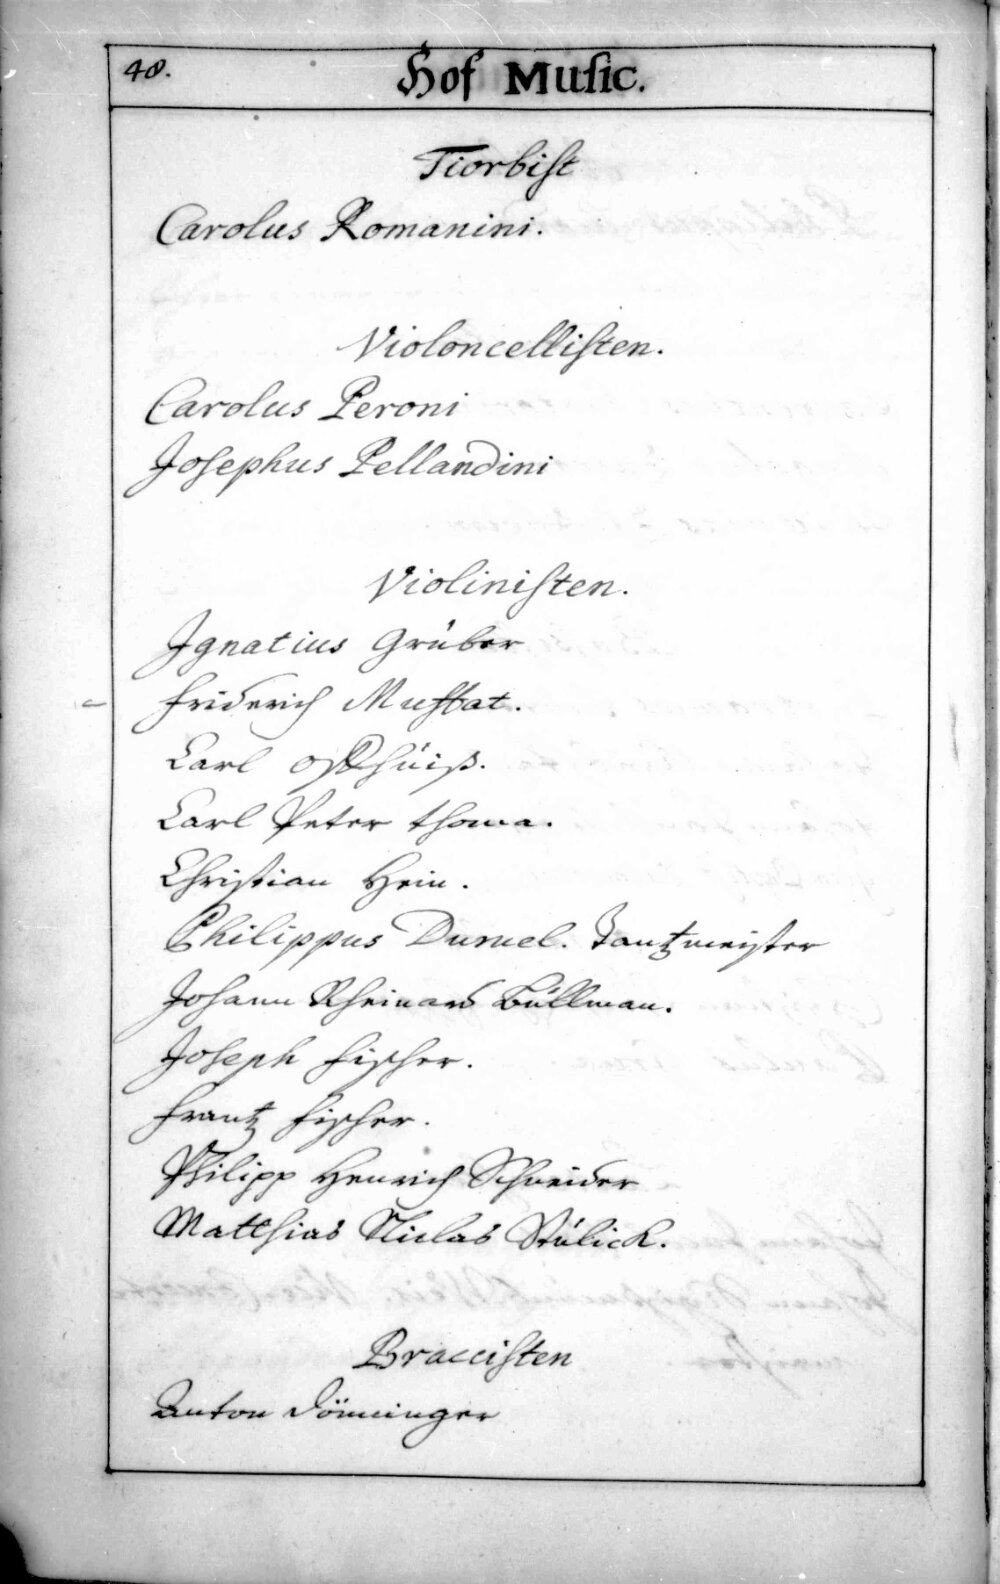 48.
Hof Music.
Tiorbist
Carolus Romanini.
Violoncellisten.
Carolus Peroni
Josephus Pellandini
Violinisten.
Ignatius Grüber
Friderich Muffat.
Carl
Carl Peter Thoma.
Christian Hein.
Philippus Dumel. Tantzmeister
Johann Rheinard Büllman.
Joseph Fischer.
Frantz Fischer.
Philipp Henrich Schneider
Matthias Niclas Stülick.
Braccisten
Anton Dönninger